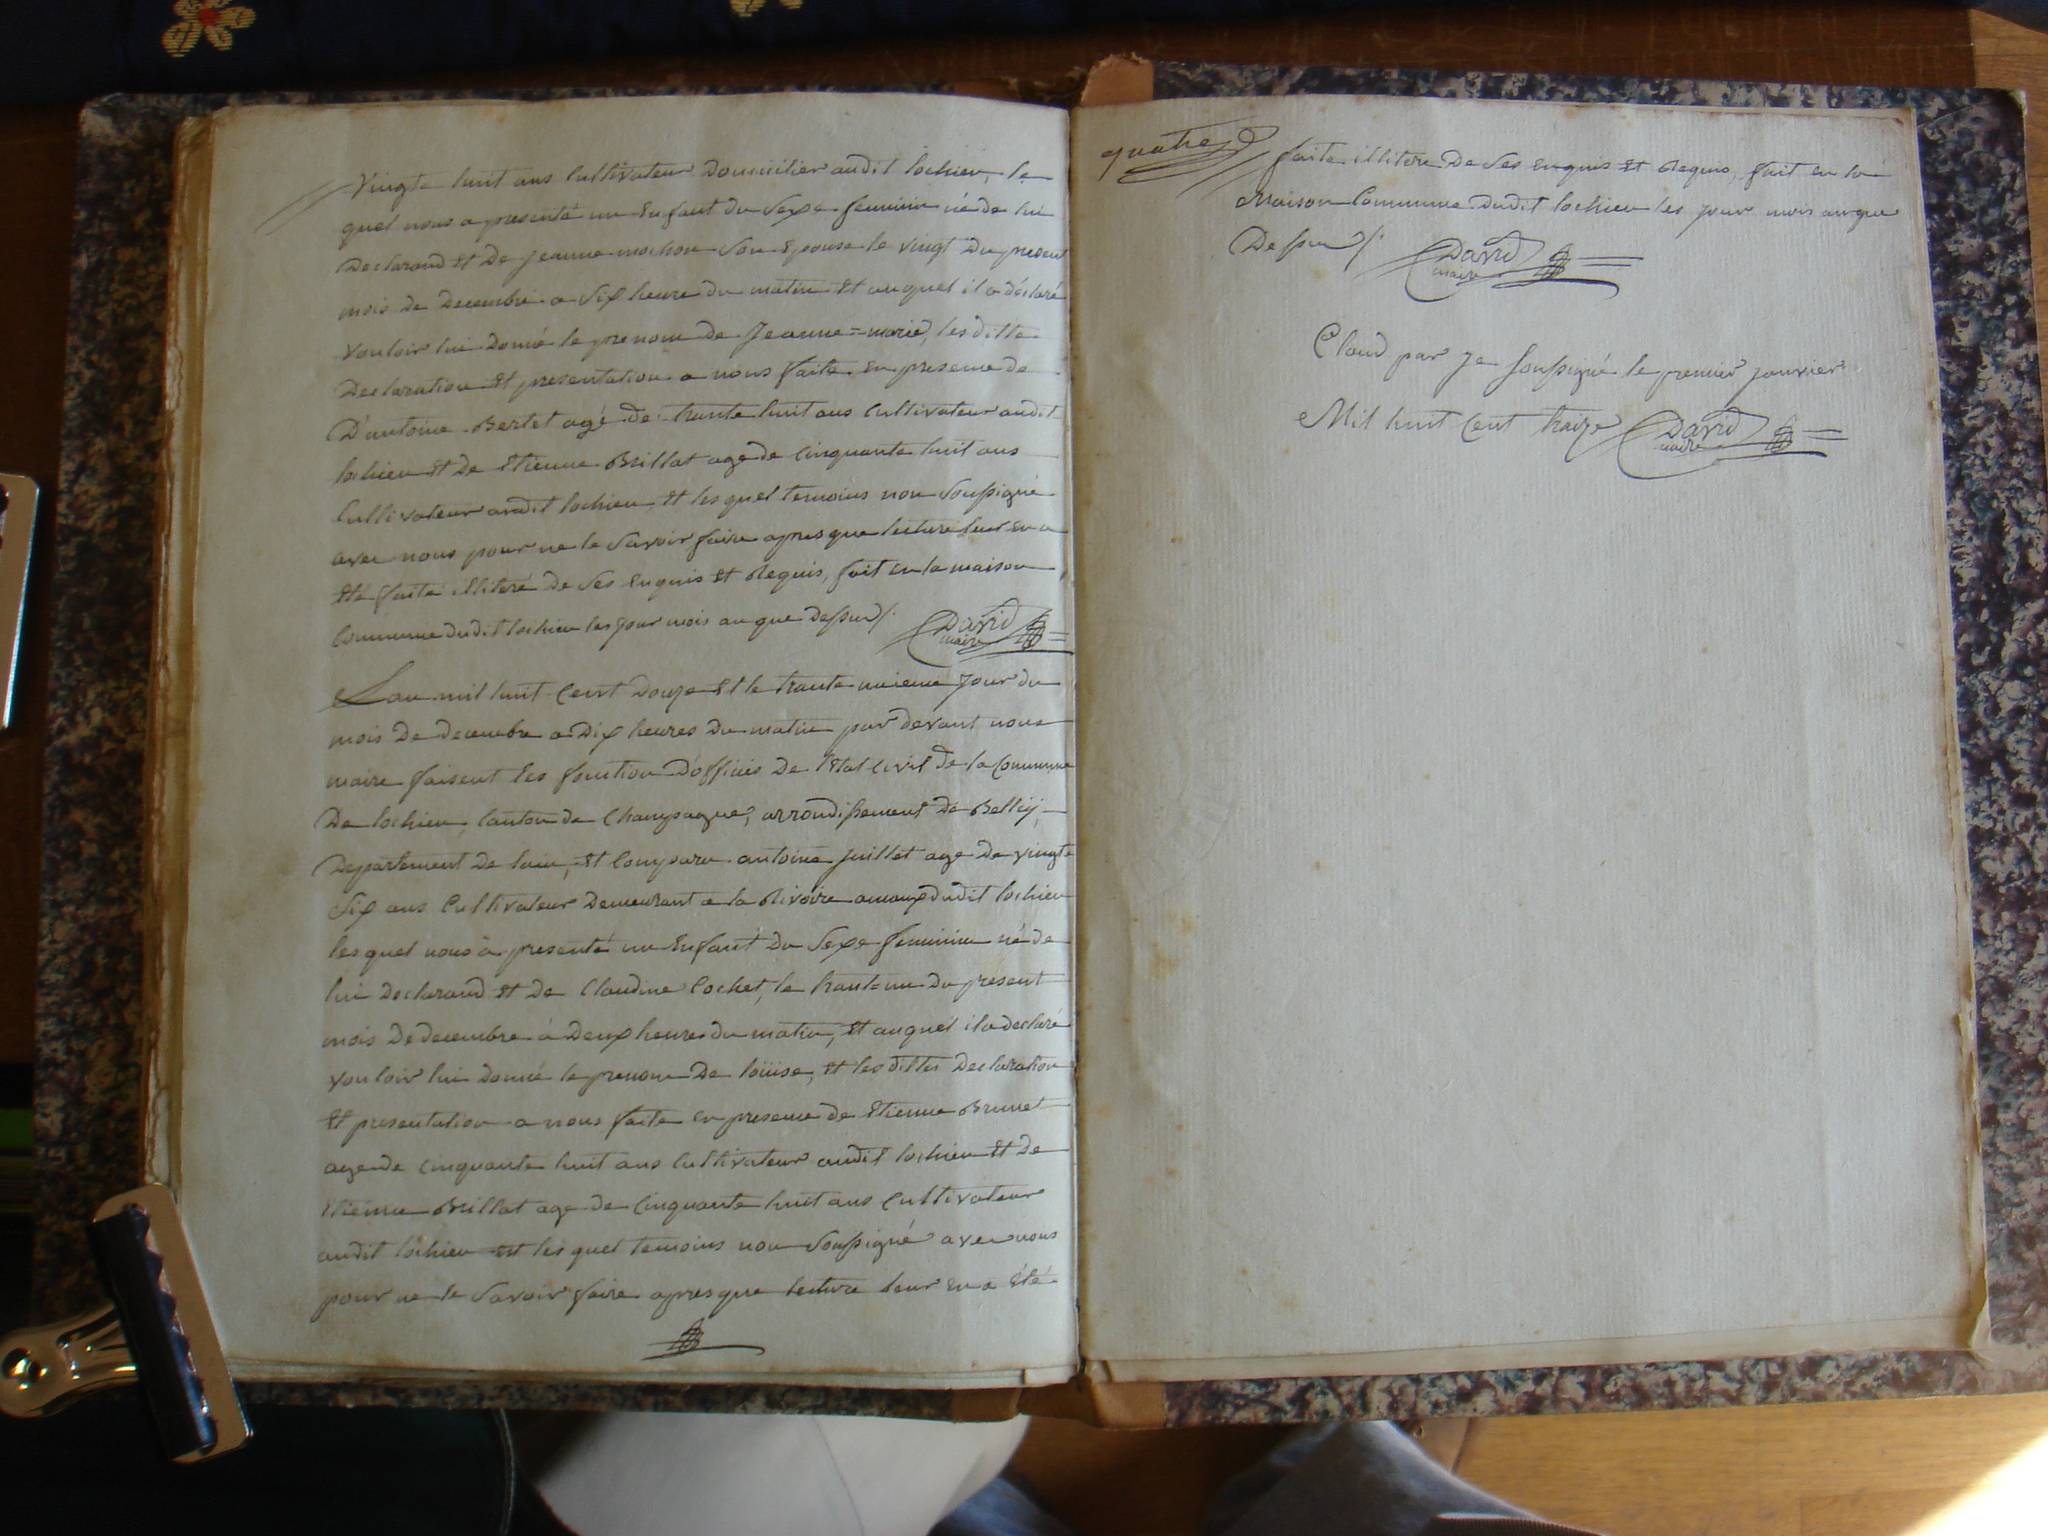 Vingte huit ans Cultivateur Domicilier audit lochieu, le
quel nous a presenté un Enfant du Sexe feminin né de lui
Declarand et De Jeanne mochon Son Epouse le vingt Du present
mois de Decembre a Six heure du matin et auquel il a déclaré
vouloir lui donné le prenom de Jeanne=marie, les ditte
Declaration et presentation a nous faite en presence de
D'antoine Bertet agé de trante huit ans Cultivateur audit
lochieu et De Etienne Brillat age de Cinquante huit ans
Cultivateur audit lochieu, et les quel temoins non Soussigné
avec nous pour ne le Savoir faire apres que lecture leur en a
été faite illiteré de Ses Enquis et Requis, fait en la maison
Commune dudit lochieu les jour mois an que Dessus /.
David
maire
Lan mil huit Cent Douze et le trante unieme Jour du
mois De decembre a Dix heures Du matin par devant nous
maire faisent les fonction D'officies De l'Etat Civil de la Commune
De lochieu, Canton de Champagne, arrondissement De Belley,
Departement De lain, est Comparu antoine juillet age De vingte
Six ans Cultivateur Demeurant a la Rivoire dudit lochieu
les quel nous à presenté un Enfant Du Sexe feminin né de
lui Declarand et de Claudine Cochet, le trant=un Du present
mois De decembre à Deux heures du matin, et auquel il a declaré
vouloir lui donné le prenom De loüise, et les dittes Declaration
et presentation a nous faite en presence de Etienne Brunet
age de Cinquante huit ans Cultivateur audit lochieu et De
Etienne Brillat age de Cinquante huit ans Cultivateur
audit lochieu et les quel temoins non Soussigné avec nous
pour ne le Savoir faire apres que lecture leur en a été
quatre
faite illitere De Ses enquis et Requis, fait en la
Maison Commune Dudit lochieu les jour mois an que
Dessus /.
David
maire
Cloud par Je Soussigné le premier janvier
Mil huit Cent traize
David
maire